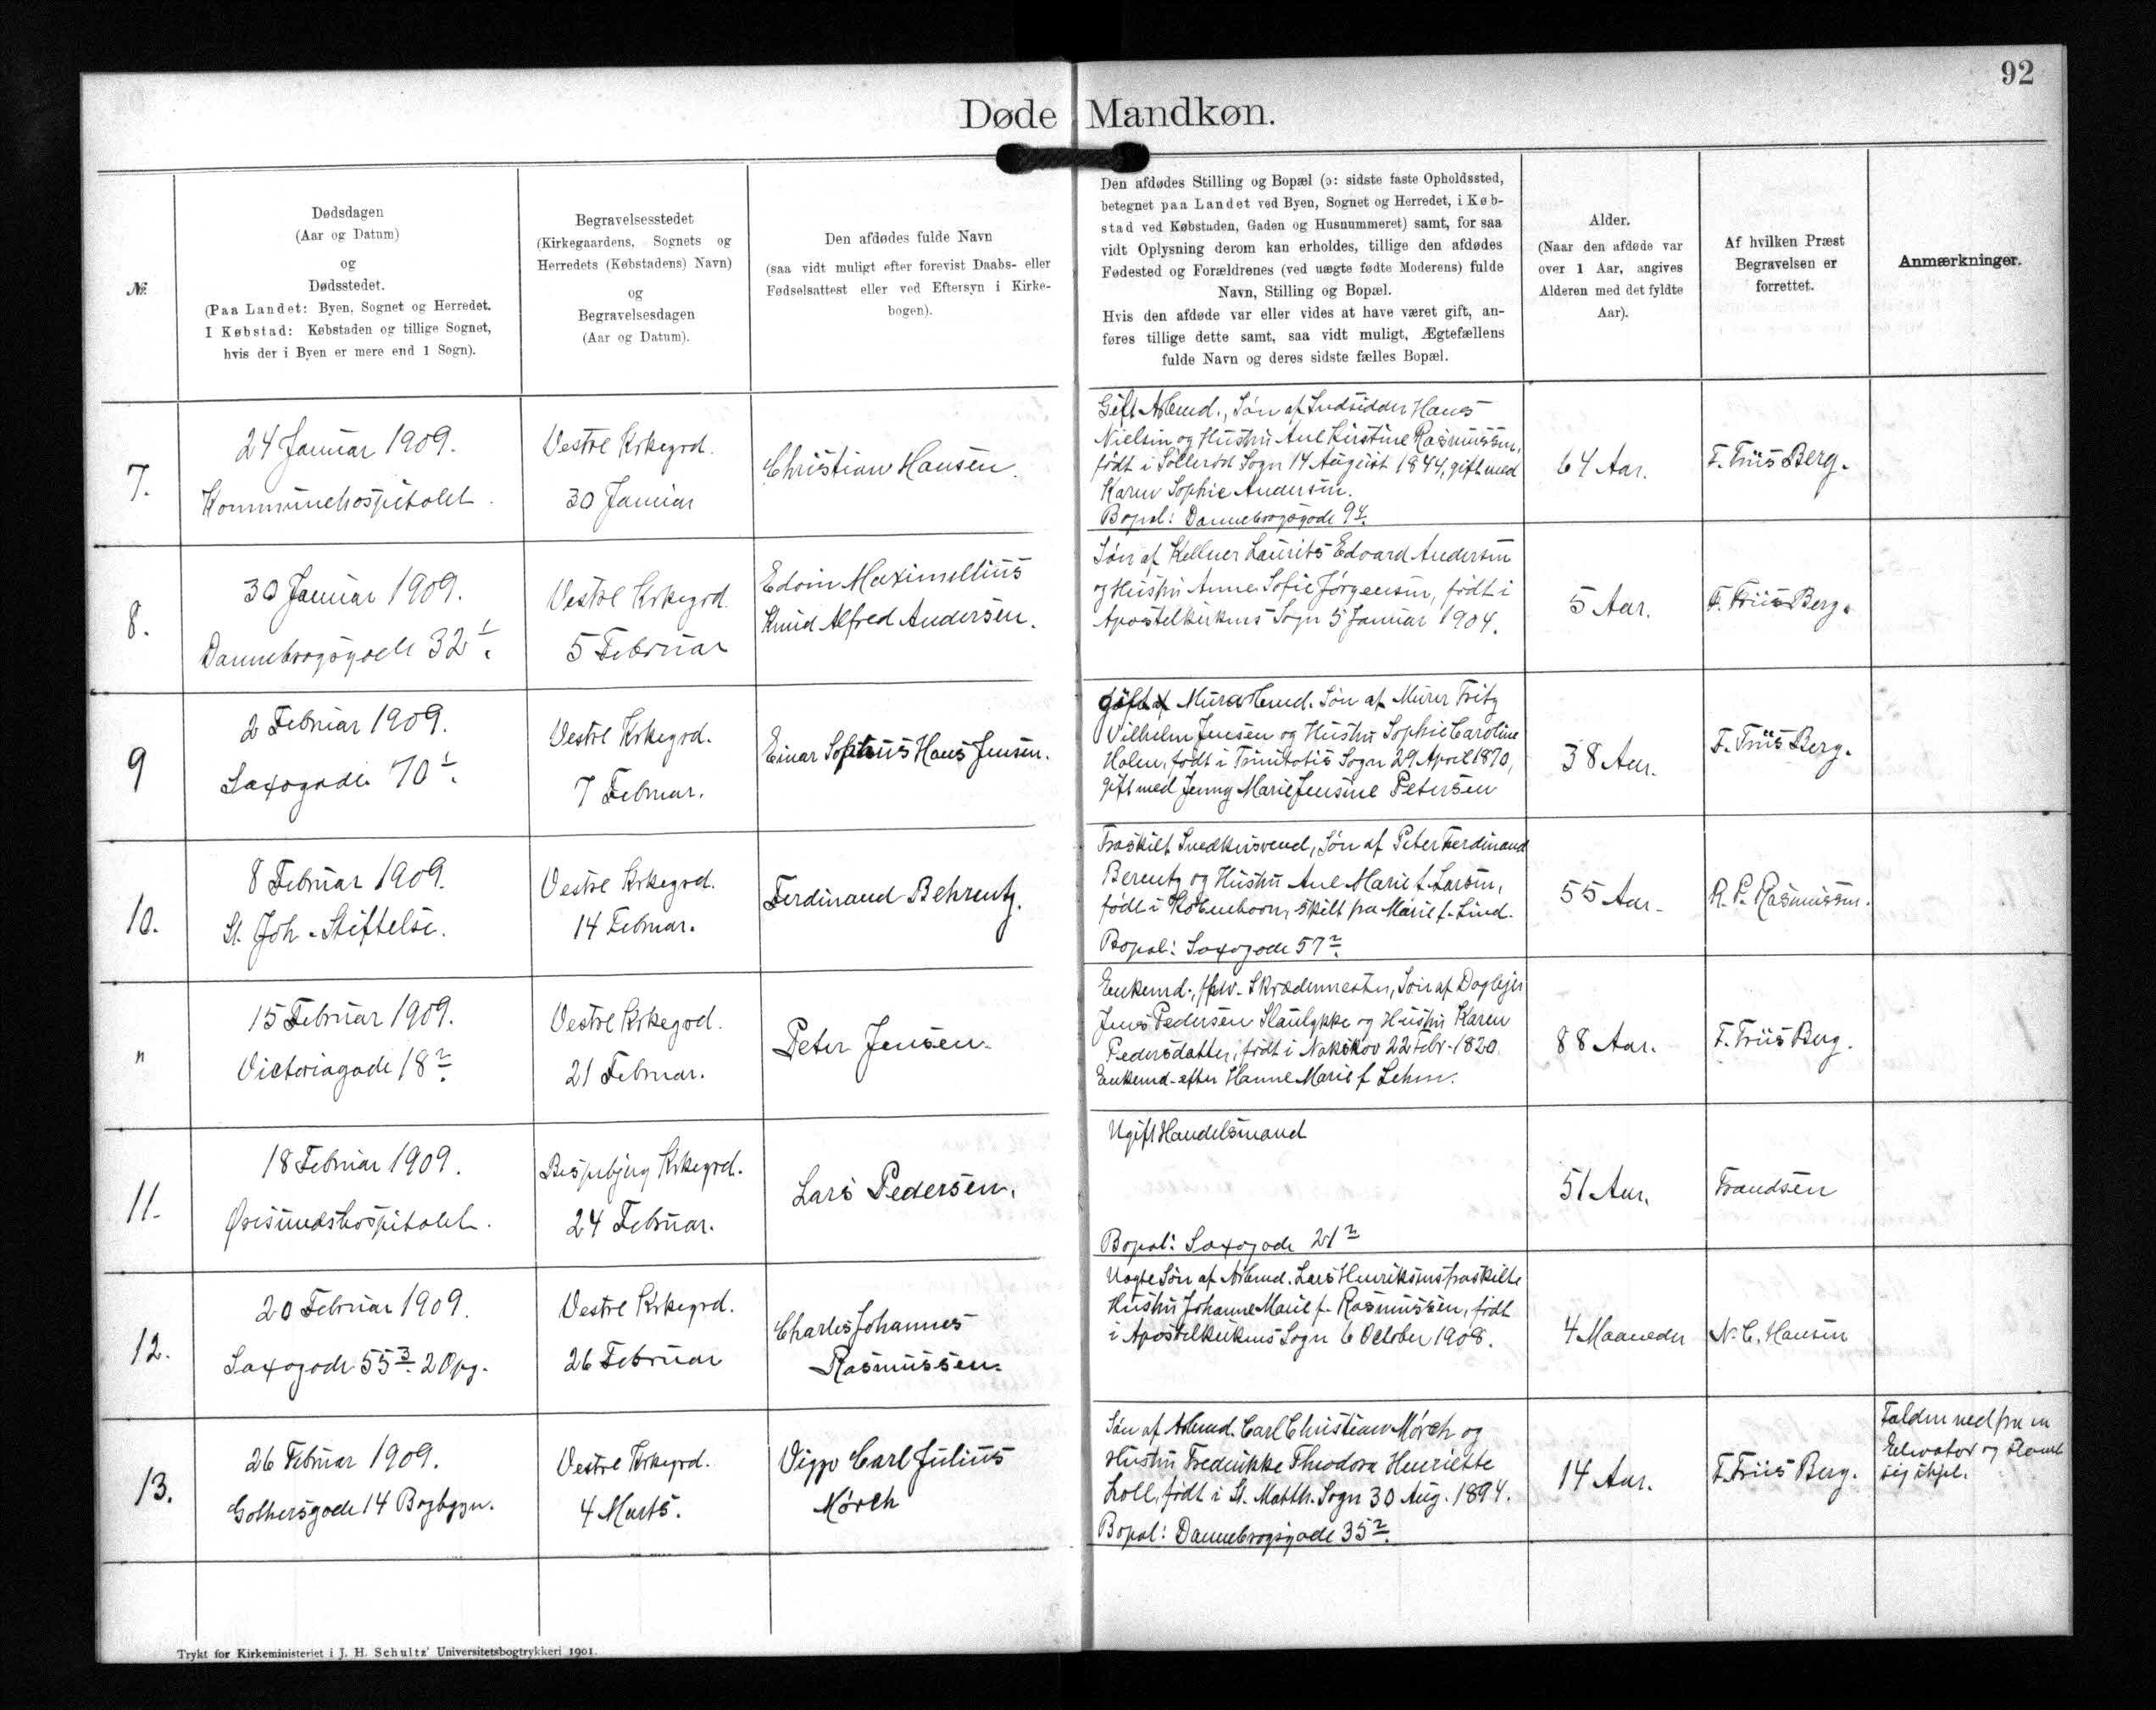 92
Døde Mandkøn.
№
Dødsdagen
(Aar og Datum)
og
Dødsstedet.
(Paa Landet: Byen, Sognet og Herredet.
I Købstad: Købstaden og tillige Sognet,
hvis der i Byen er mere end 1 Sogn).
Begravelsesstedet
(Kirkegaardens, Sognets og
Herredets (Købstadens) Navn)
og
Begravelsesdagen
(Aar og Datum).
Den afdødes fulde Navn
(saa vidt muligt efter forevist Daabs- eller
Fødselsattest eller ved Eftersyn i Kirke-
bogen).
Den afdødes Stilling og Bopæl (ɔ: sidste faste Opholdssted,
betegnet paa Landet ved Byen, Sognet og Herredet, i Køb-
stad ved Købstaden, Gaden og Husnummeret) samt, for saa
vidt Oplysning derom kan erholdes, tillige den afdødes
Fødested og Forældrenes (ved uægte fødte Moderens) fulde
Navn, Stilling og Bopæl.
Hvis den afdøde var eller vides at have været gift, an-
føres tillige dette samt, saa vidt muligt, Ægtefællens
fulde Navn og deres sidste fælles Bopæl.
Alder.
(Naar den afdøde var
over 1 Aar, angives
Alderen med det fyldte
Aar).
Af hvilken Præst
Begravelsen er
forrettet.
Anmærkninger.
7.
24 Januar 1909.
Kommunehospitalet.
Vestre Kirkegrd.
30 Januar
Christian Hansen.
Gift Arbmd., Søn af Indsidder Hans
Nielsen og Hustru Ane Kirstine Rasmussen,
født i Søllerød Sogn 14 August 1844, gift med
Karen Sophie Andersen.
Bopæl: Dannebrogsgade 9 4.
64 Aar.
F. Friis Berg.
8.
30 Januar 1909.
Dannebrogsgade 32 1.
Vestre Kirkegrd.
5 Februar
Edvin Maximellius
Knud Alfred Andersen.
Søn af Kellner Laurits Edvard Andersen
og Hustru Anne Sofie Jørgensen, født i
Apostelkirkens Sogn 5 Januar 1904.
5 Aar.
F. Friis Berg.
9
2 Februar 1909.
Saxogade 70 1.
Vestre Kirkegrd.
7 Februar.
Einar Sophus Hans Jensen.
gift Murarbmd. Søn af Murer Fritz
Vilhelm Jensen og Hustru Sophie Caroline
Holm, født i Trinitatis Sogn 29 April 1870,
gift med Jenny Marie Jensine Petersen
38 Aar.
F. Friis Berg.
10.
8 Februar 1909.
St. Joh. Stiftelse.
Vestre Kirkegrd.
14 Februar.
Ferdinand Behrentz.
Fraskilt Snedkersvend, Søn af Peter Ferdinand
Berentz og Hustru Ane Marie f. Larsen,
født i Kbenhavn, skilt fra Marie f. Lind.
Bopæl: Saxogade 57 2.
55 Aar.
R. P. Rasmussen.
"
15 Februar 1909.
Victoriagade 18 2.
Vestre Kirkegrd.
21 Februar.
Peter Jensen.
Enkemd., Skrædermester, Søn af Daglejer
Jens Pedersen Slaulykke og Hustru Karen
Pedersdatter, født i Nakskov 22 Febr. 1820.
Enkemd. efter Hanne Marie f. Lehm.
88 Aar.
F. Friis Berg.
11.
18 Februar 1909.
Øresundshospitalet.
Bispebjerg Kirkegrd.
24 Februar.
Lars Pedersen.
Ugift Handelsmand
Bopæl: Saxogade 21 2
51 Aar.
Frandsen
12.
20 Februar 1909.
Saxogade 55 3. 2 Opg.
Vestre Kirkegrd.
26 Februar
Charles Johannes
Rasmussen.
Uægte Søn af Arbmd. Lars Henriksens fraskilte
Hustru Johanne Marie f. Rasmussen, født
i Apostelkirkens Sogn 6 October 1908.
4 Maaneder
N. C. Hansen
13.
26 Februar 1909.
Gothersgade 14 Bagbygn.
Vestre Kirkegrd.
4 Marts.
Viggo Carl Julius
Mørch
Søn af Arbmd. Carl Christian Mørch og
Hustru Frederikke Theodora Henriette
Loll, født i St. Matth. Sogn 30 Aug. 1894.
Bopæl: Dannebrogsgade 35 2.
14 Aar.
F. Friis Berg.
Falden ned fra en
Elevator og slaaet
sig ihjel.
Trykt for Kirkeministeriet i J. H. Schultz' Universitetsbogtrykkeri 1901.